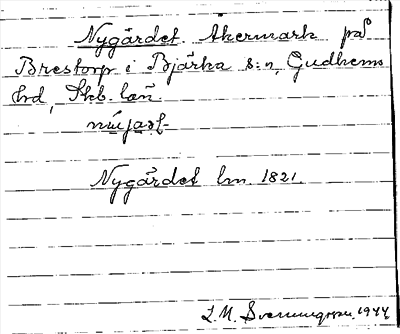 Nygärdet. Åkermark på
Brestorp i Bjärka s:n, Gudhems
hrd, Skb. län
Nygärdet lm. 1821.
L. M. Svenungsson 1944